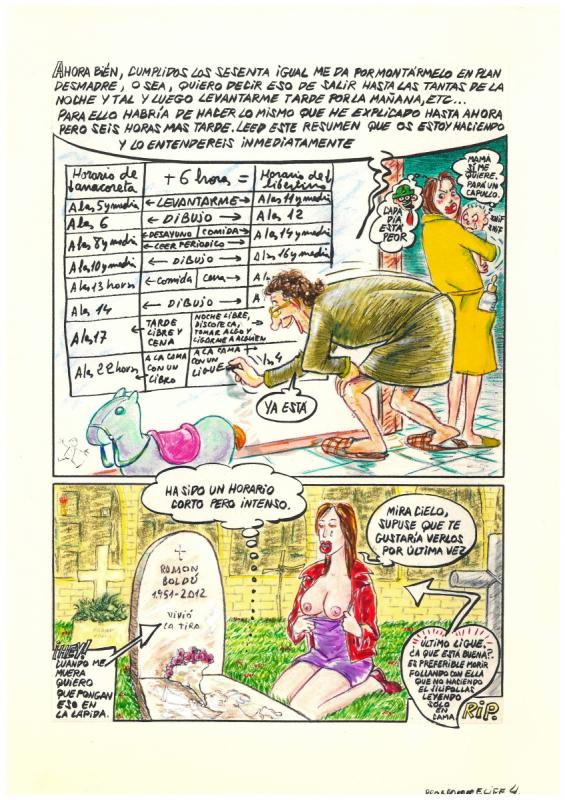 AHORA BIÉN, CUMPLIDOS LOS SESENTA IGUAL ME DA POR MONTÁRMELO EN PLAN
DESMADRE, O SEA, QUIERO DECIR ESO DE SALIR HASTA LAS TANTAS DE LA
NOCHE Y TAL Y LUEGO LEVANTARME TARDE POR LA MAÑANA, ETC...
PARA ELLO HABRÍA DE HACER LO MISMO QUE HE EXPLICADO HASTA AHORA
PERO SEIS HORAS MAS TARDE. LEED ESTE RESUMEN QUE OS ESTOY HACIENDO
Y LO ENTENDEREIS INMEDIATAMENTE
Horario de
+ 6 horas =
Horario del
libertino
A las 5 y media
← LEVANTARME →
A las 11 y media
A las 6
← DIBUJO →
A las 12
A las 8 y media
← DESAYUNO COMIDA →
← LEER PERIODICO →
A las 14 y media
A las 10 y media
← DIBUJO →
A las 16 y media
A las 13 horas
← comida cena →
A las 14
← DIBUJO →
A las 17
← TARDE
LIBRE Y
CENA
NOCHE LIBRE,
DISCOTECA,
TOMAR ALGO Y
LIGARME A ALGUIEN
A las 22 horas
← A LA CAMA
CON UN
LIBRO
A LA CAMA
CON UN
LIGUE
las 4
CADA
DÍA
ESTÁ
PEOR
MAMA
SÍ ME
QUIERE.
PAPÁ UN
CAPULLO.
SNIF
SNIF
YA ESTÁ
HA SIDO UN HORARIO
CORTO PERO INTENSO.
MIRA CIELO,
SUPUSE QUE TE
GUSTARÍA VERLOS
POR ÚLTIMA VEZ
RAMON
BOLDÚ
1951-2012
VIVIÓ
LA TIRA
¡HEY!
CUANDO ME
MUERA
QUIERO
QUE PONGAN
ESO EN
LA LÁPIDA.
ÚLTIMO LIGUE.
¿A QUE ESTÁ BUENA?.
ES PREFERIBLE MORIR
FOLLANDO CON ELLA
QUE NO HACIENDO
EL JILIPOLLAS
LEYENDO
SOLO
EN
CAMA
RIP.